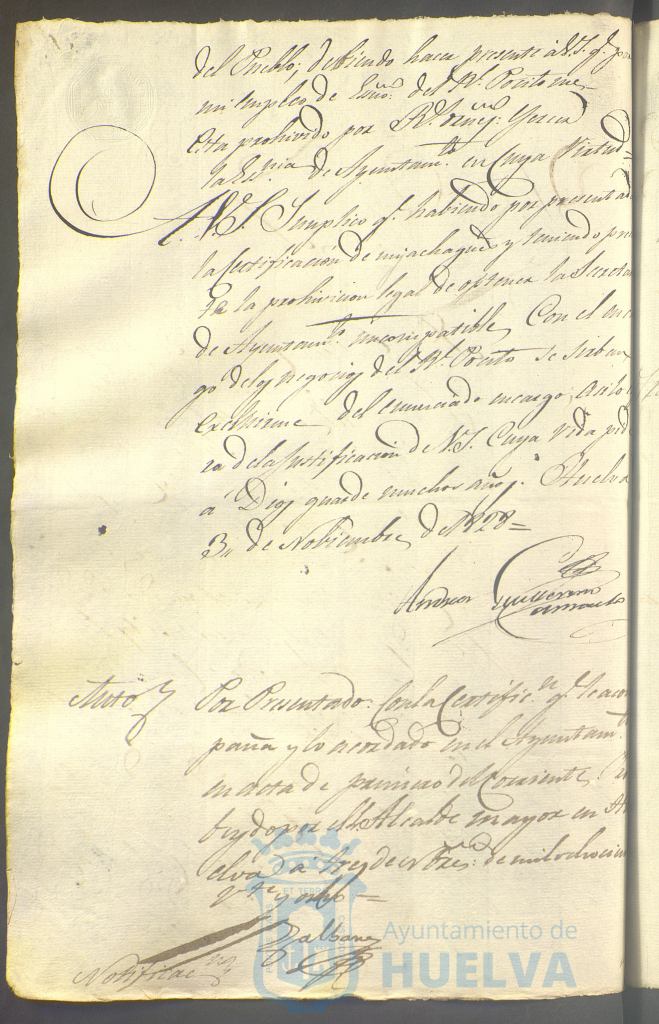 del Pueblo; debiendo hacer presente á V.S. qe. por
mi empleo de Esno. del Rl. Posito me
esta prohivido por Rl.
la Esnia de Ayuntamto. en Cuya Virtud=
A V.S. Suplico qe. habiendo por presentada
la Certificacion de mis achaques y teniendo pre
la prohivicion legal de obtener la Secreta
de Ayuntamto. incompatible, Con el en
go de los negocios del Rl. Posito se sirban
del enunciado encargo; asi lo
ra de la Justificacion de V.S. Cuya Vida pid
a Dios guarde muchos años. Huelva
3,, de Nobiembre, de 1828=
Andres Guillermo
Camacho
Auto
Por Presentado: Con la Certificn. qe. le acom
paña y lo acordado en el Ayuntamto.
en acta de primero del Corriente.
por el Sr. Alcalde mayor en Hu
elva á tres de Nbre: de mil ochocien
vte. y ocho=
Galbane
Notificacn.
ET TERRAE
Ayuntamiento de
HUELVA